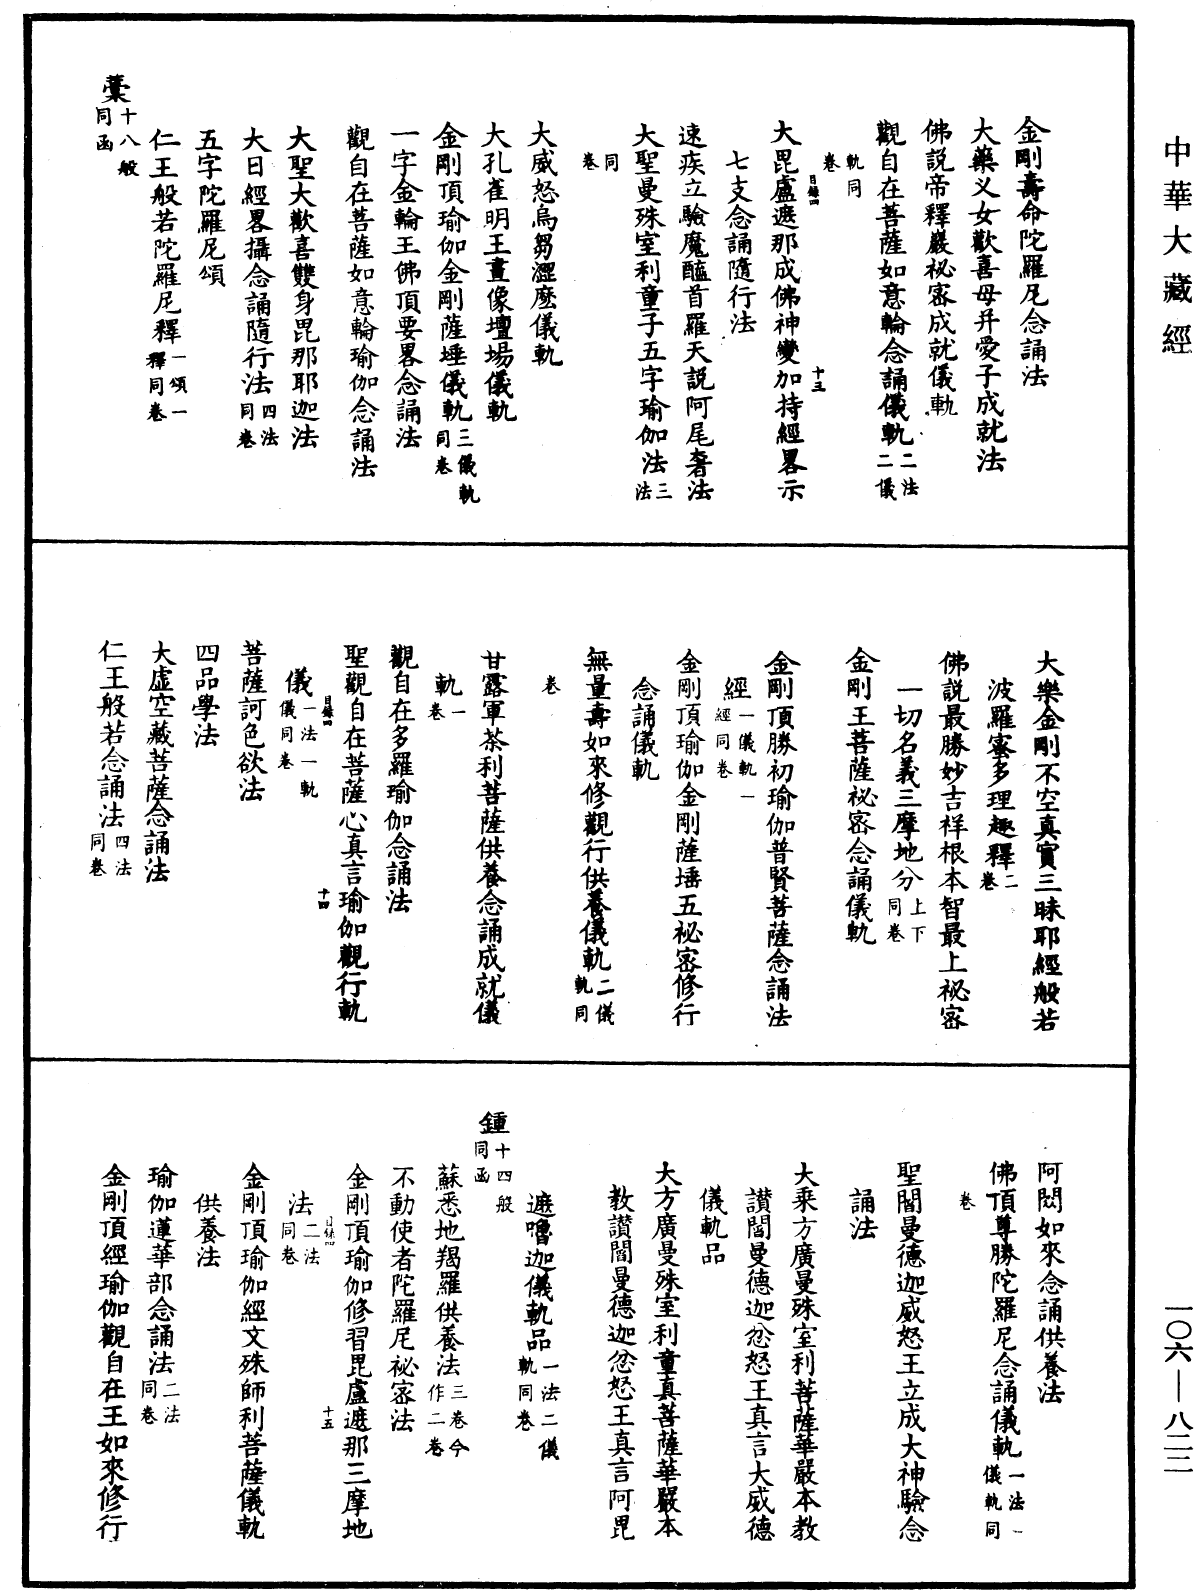 中華大藏經
一〇六—八二二
金剛壽命陀羅尼念誦法
大藥义女歡喜母幷愛子成就法
佛說帝釋巖祕密成就儀軌
觀自在菩薩如意輪念誦儀軌二法二儀
軌同卷
目錄四 十三
大毘盧遮那成佛神變加持經畧示
七支念誦隨行法
速疾立驗魔醯首羅天說阿尾奢法
大聖曼殊室利童子五字瑜伽法三法
同卷
大威怒烏芻澀麼儀軌
大孔雀明王畫像壇場儀軌
金剛頂瑜伽金剛薩埵儀軌三儀軌同卷
一字金輪王佛頂要畧念誦法
觀自在菩薩如意輪瑜伽念誦法
大聖大歡喜雙身毘那耶迦法
大日經畧攝念誦隨行法四法同卷
五字陀羅尼頌
仁王般若陀羅尼釋一頌一釋同卷
藁十八般同函
大樂金剛不空真實三昧耶經般若
波羅蜜多理趣釋二卷
佛說最勝妙吉祥根本智最上祕密
一切名義三摩地分上下同卷
金剛王菩薩祕密念誦儀軌
金剛頂勝初瑜伽普賢菩薩念誦法
經一儀軌一經同卷
金剛頂瑜伽金剛薩埵五祕密修行
念誦儀軌
無量壽如來修觀行供養儀軌二儀軌同
卷
甘露軍荼利菩薩供養念誦成就儀
軌一卷
觀自在多羅瑜伽念誦法
聖觀自在菩薩心真言瑜伽觀行軌
目錄四 十四
儀一法一軌儀同卷
菩薩訶色欲法
四品學法
大虛空藏菩薩念誦法
仁王般若念誦法四法同卷
阿閦如來念誦供養法
佛頂尊勝陀羅尼念誦儀軌一法一儀軌同
卷
聖閻曼德迦威怒王立成大神驗念
誦法
大乘方廣曼殊室利菩薩華嚴本教
讃閻曼德迦忿怒王真言大威德
儀軌品
大方廣曼殊室利童真菩薩華嚴本
教讃閻曼德迦忿怒王真言阿毘
遮嚕迦儀軌品一法二儀軌同卷
鍾十四般同函
蘇悉地羯羅供養法三卷今作二卷
不動使者陀羅尼祕密法
金剛頂瑜伽修習毘盧遮那三摩地
目錄四 十五
法二法同卷
金剛頂瑜伽經文殊師利菩薩儀軌
供養法
瑜伽蓮華部念誦法二法同卷
金剛頂經瑜伽觀自在王如來修行